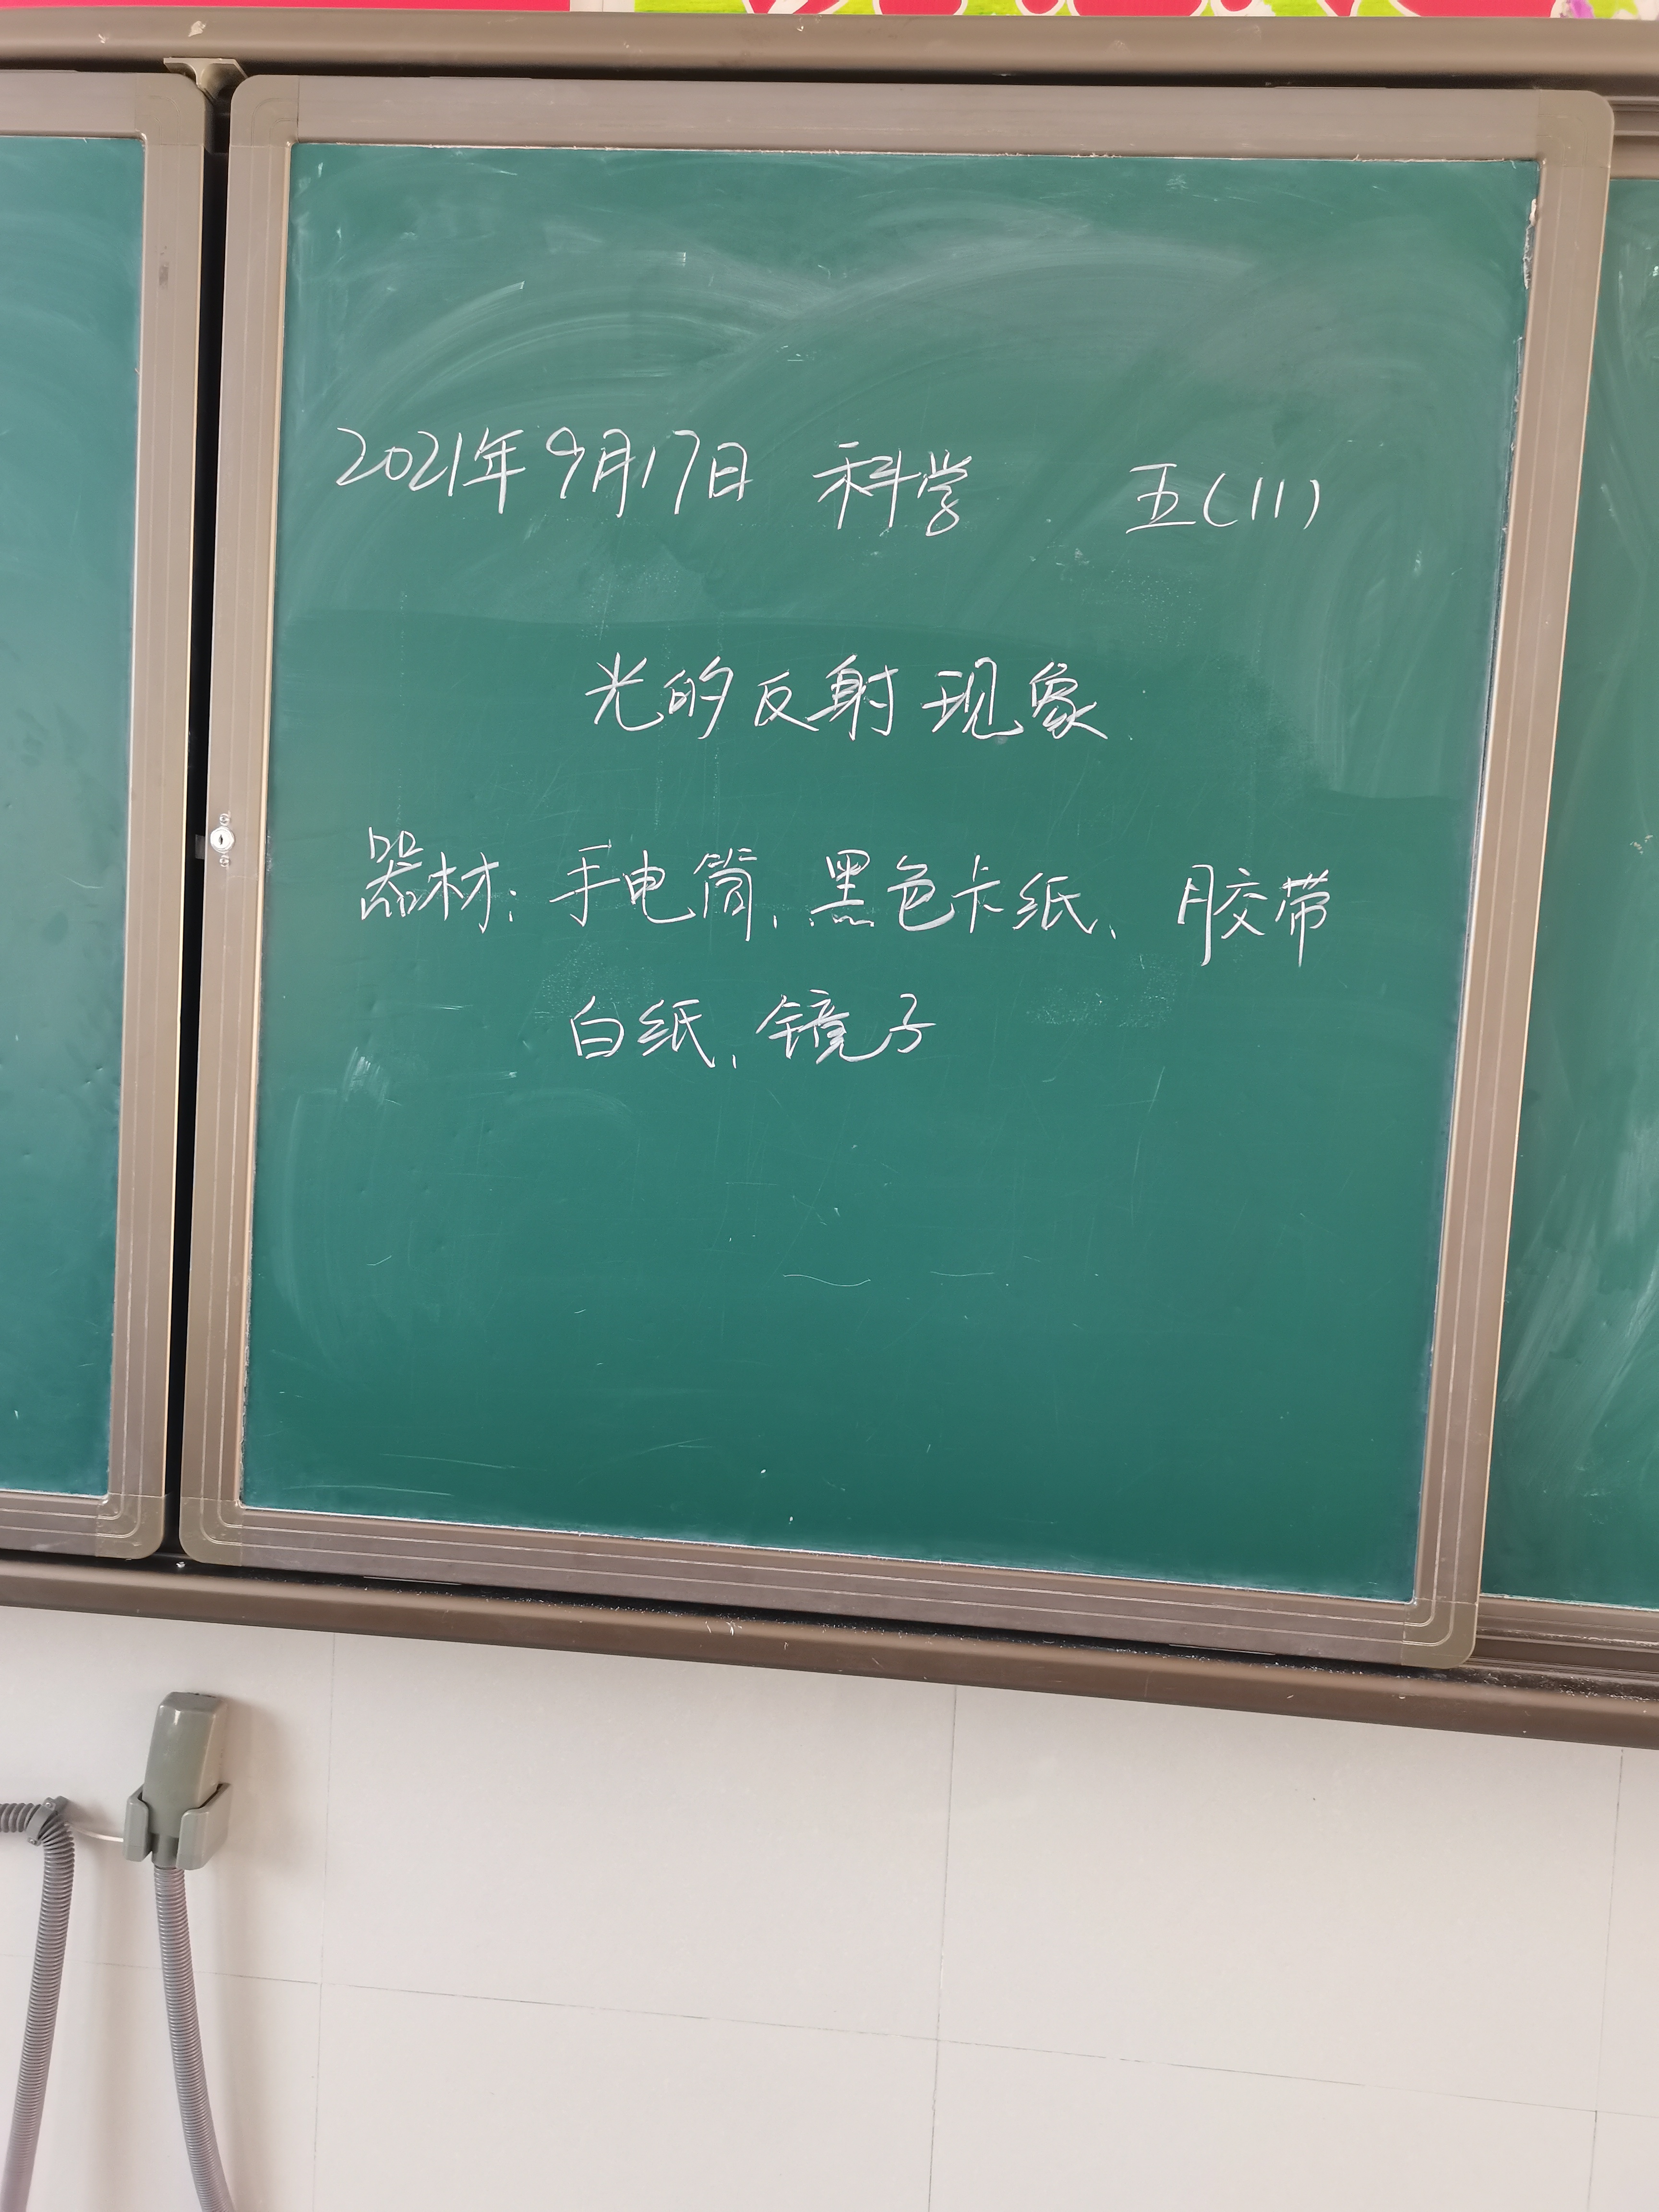 2021年9月17日 科学 五(11)
光的反射现象
器材:手电筒、黑色卡纸、胶带
白纸、镜子